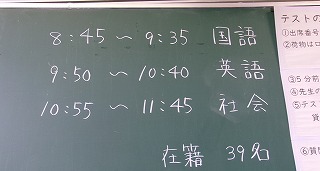 8:45 〜 9:35 国語
9:50 〜 10:40 英語
10:55 〜 11:45 社会
在籍 39名
テストの
①出席番号
②荷物は
③5分前
④先生の
⑤テス
⑥質問